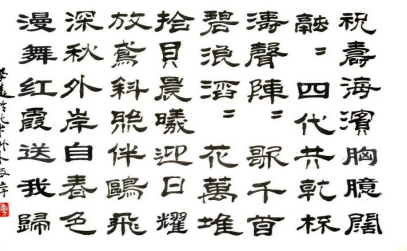 祝壽海濱胸臆闊
融〻四代共乾杯
濤聲陣〻歌千首
碧浪滔〻花萬堆
拾貝晨曦迎日耀
放鳶斜照伴鷗飛
深秋外岸自春色
漫舞紅霞送我歸